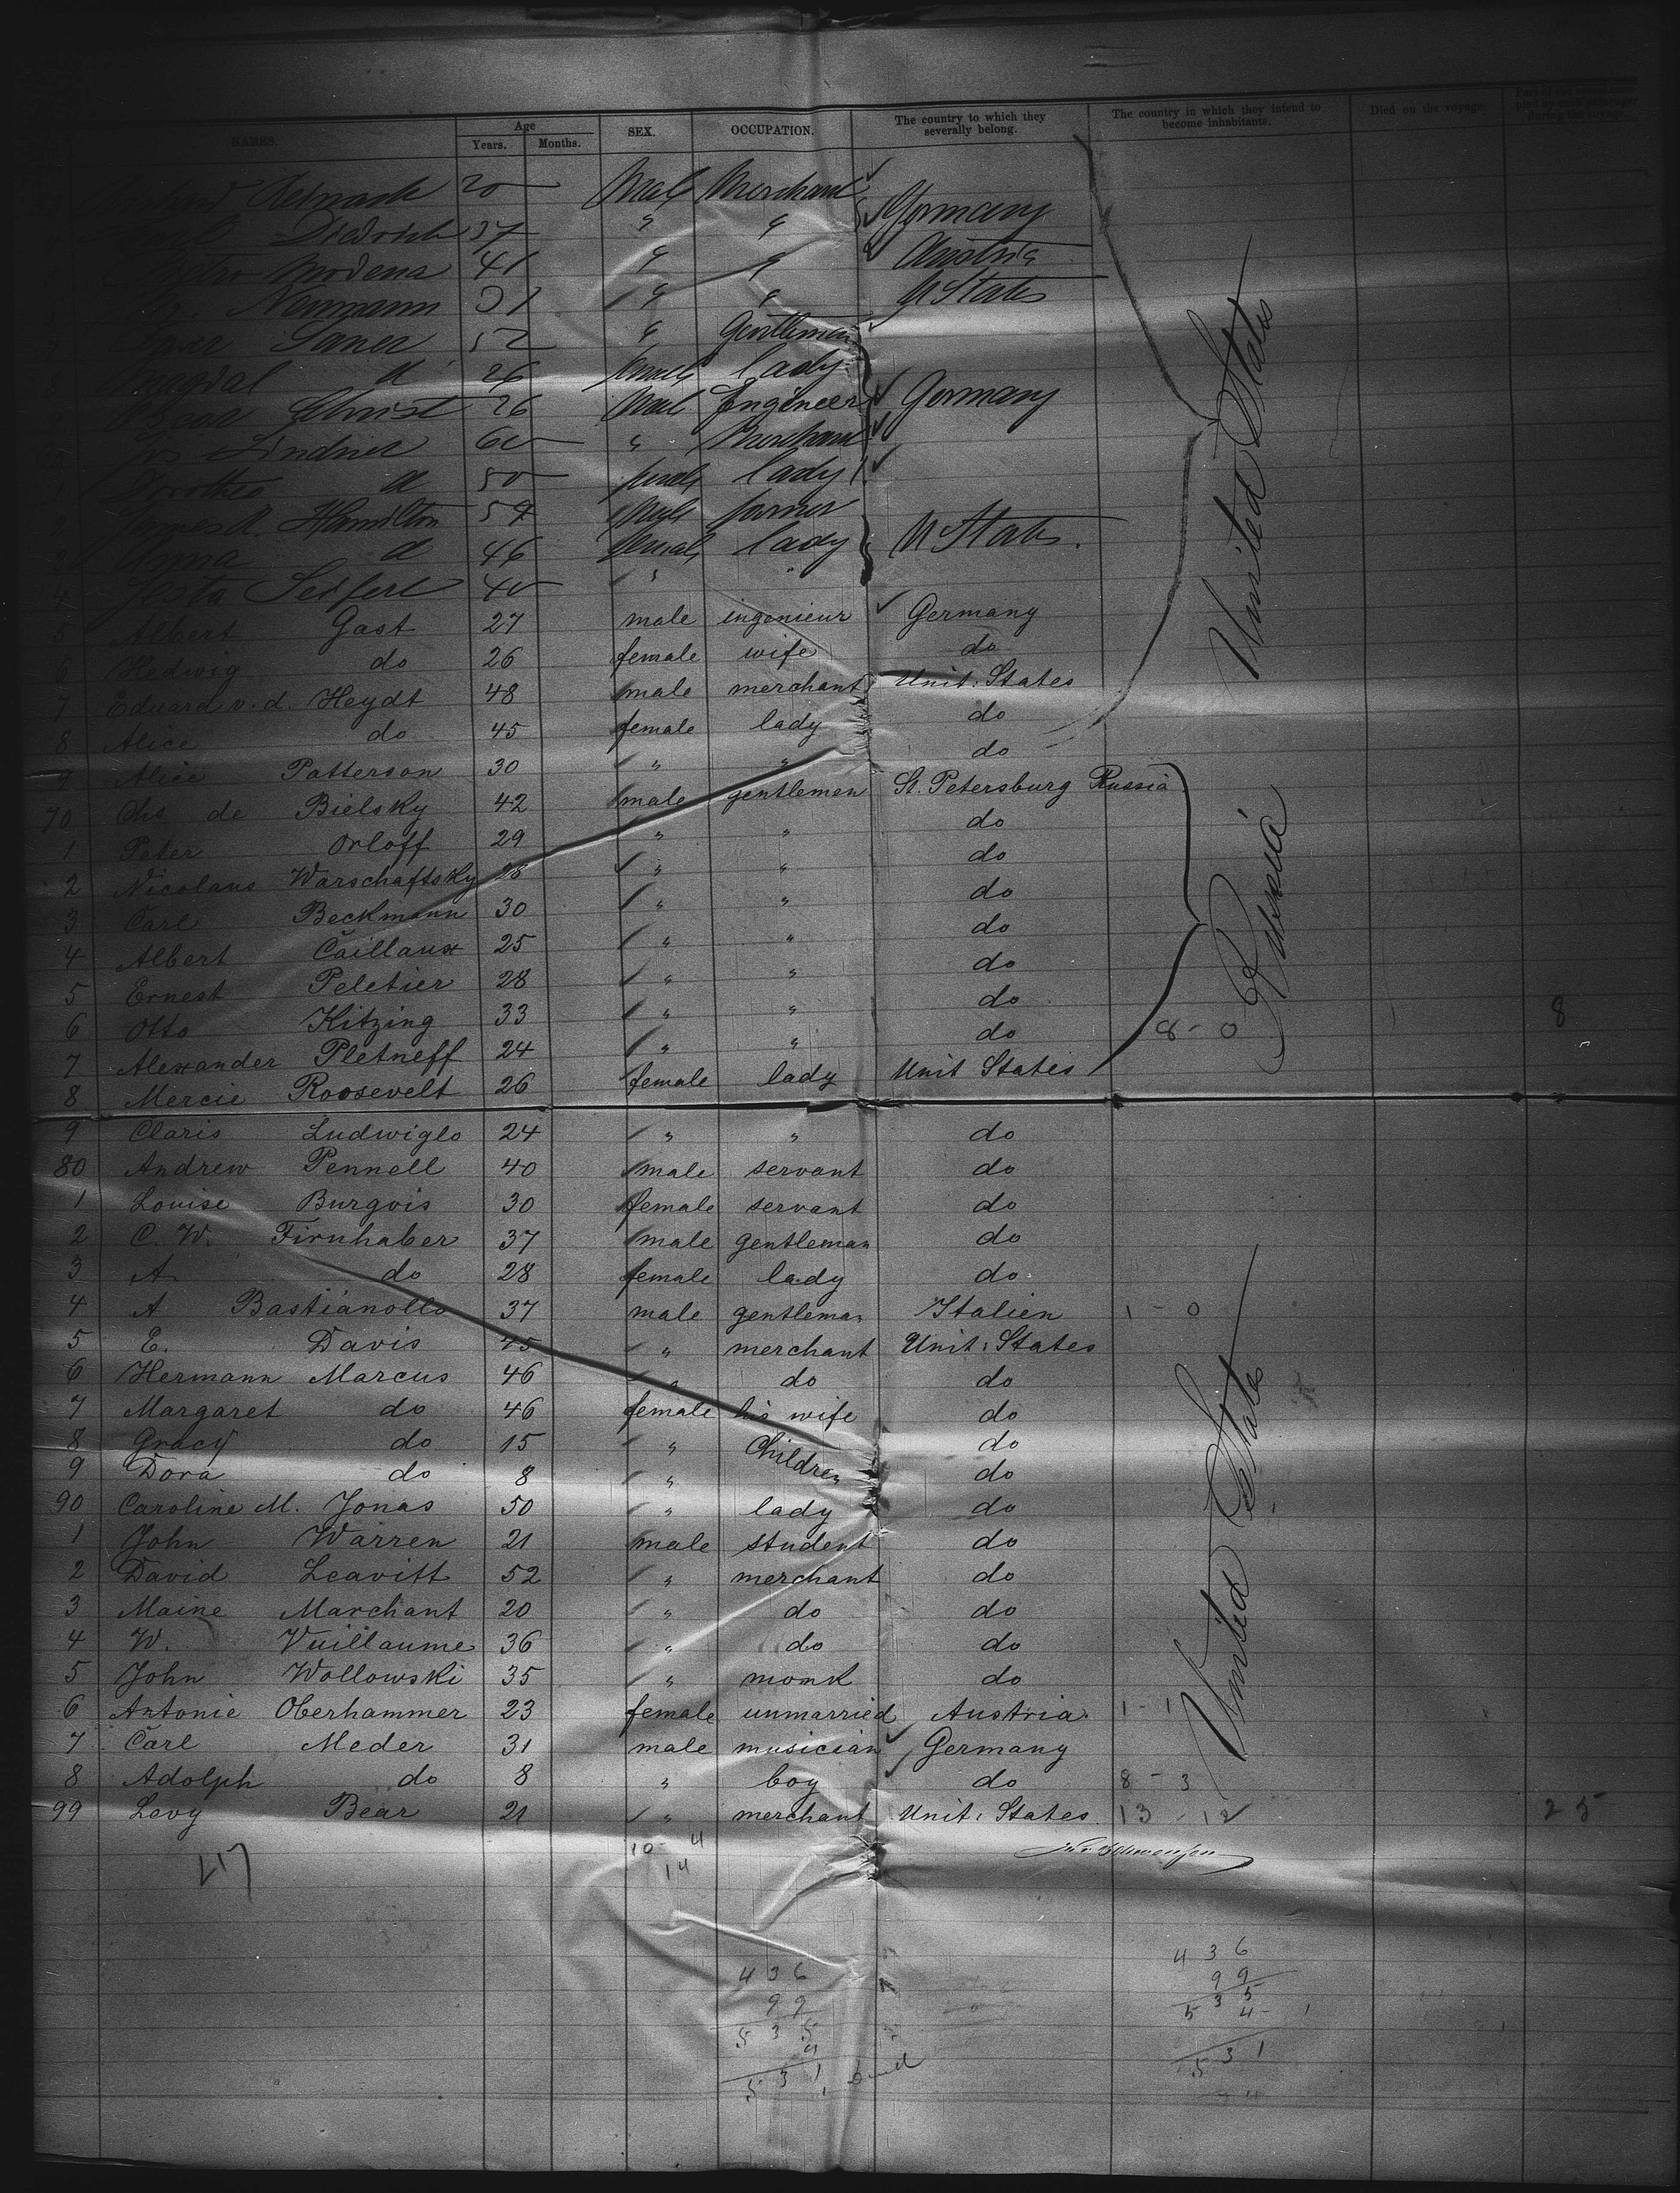 NAMES. Age Years. Months. SEX. OCCUPATION. The country to which they severally belong. The country in which they intend to become inhabitants. Died on the voyage.
20 Male Merchant
Diedrich 37 " " Germany
Modena 41 " " Austria
Neumann 31 " " U States
52 " Gentleman
d 26 female lady
Christ 26 Male Engineer Germany
Lindner 60 " Merchant
Dorothea d 50 female lady
James R. Hamilton 54 Male farmer
Anna d 46 female lady U States.
Seifert 40 " "
5 Albert Gast 27 male ingenieur Germany
6 Hedwig do 26 female wife do
7 Eduard v. d. Heydt 48 male merchant Unit. States
8 Alice do 45 female lady do
9 Alice Patterson 30 " " do
United States
70 Chs de Bielsky 42 male gentlemen St. Petersburg Russia
1 Peter Orloff 29 " " do
2 Nicolaus Warschaftsky 28 " " do
3 Carl Beckmann 30 " " do
4 Albert Caillaux 25 " " do
5 Ernest Peletier 28 " " do
6 Otto Kitzing 33 " " do
7 Alexander Pletneff 24 " " do 8 - 0 8
Russia
8 Mercie Roosevelt 26 female lady Unit States
9 Claris Ludwiglo 24 " " do
80 Andrew Pennell 40 male servant do
1 Louise Burgois 30 female servant do
2 C. W. Firnhaber 37 male gentleman do
3 A. do 28 female lady do
4 A Bastianollo 37 male gentleman Italien 1 - 0
5 E. Davis 45 " merchant Unit. States
6 Hermann Marcus 46 " do do
7 Margaret do 46 female his wife do
8 Gracy do 15 " Children do
9 Dora do 8 " do
90 Caroline M. Jonas 50 " lady do
1 John Warren 21 male student do
2 David Leavitt 52 " merchant do
3 Maine Marchant 20 " do do
4 W. Vuillaume 36 " do do
5 John Wollowski 35 " monk do
6 Antonie Oberhammer 23 female unmarried Austria. 1 - 1
7 Carl Meder 31 male musician Germany
8 Adolph do 8 " boy do 8 - 3
99 Levy Bear 21 " merchant Unit. States. 13 - 12 25
United States
10 4
14
436 436
99 99
535 535
4 4
531 531